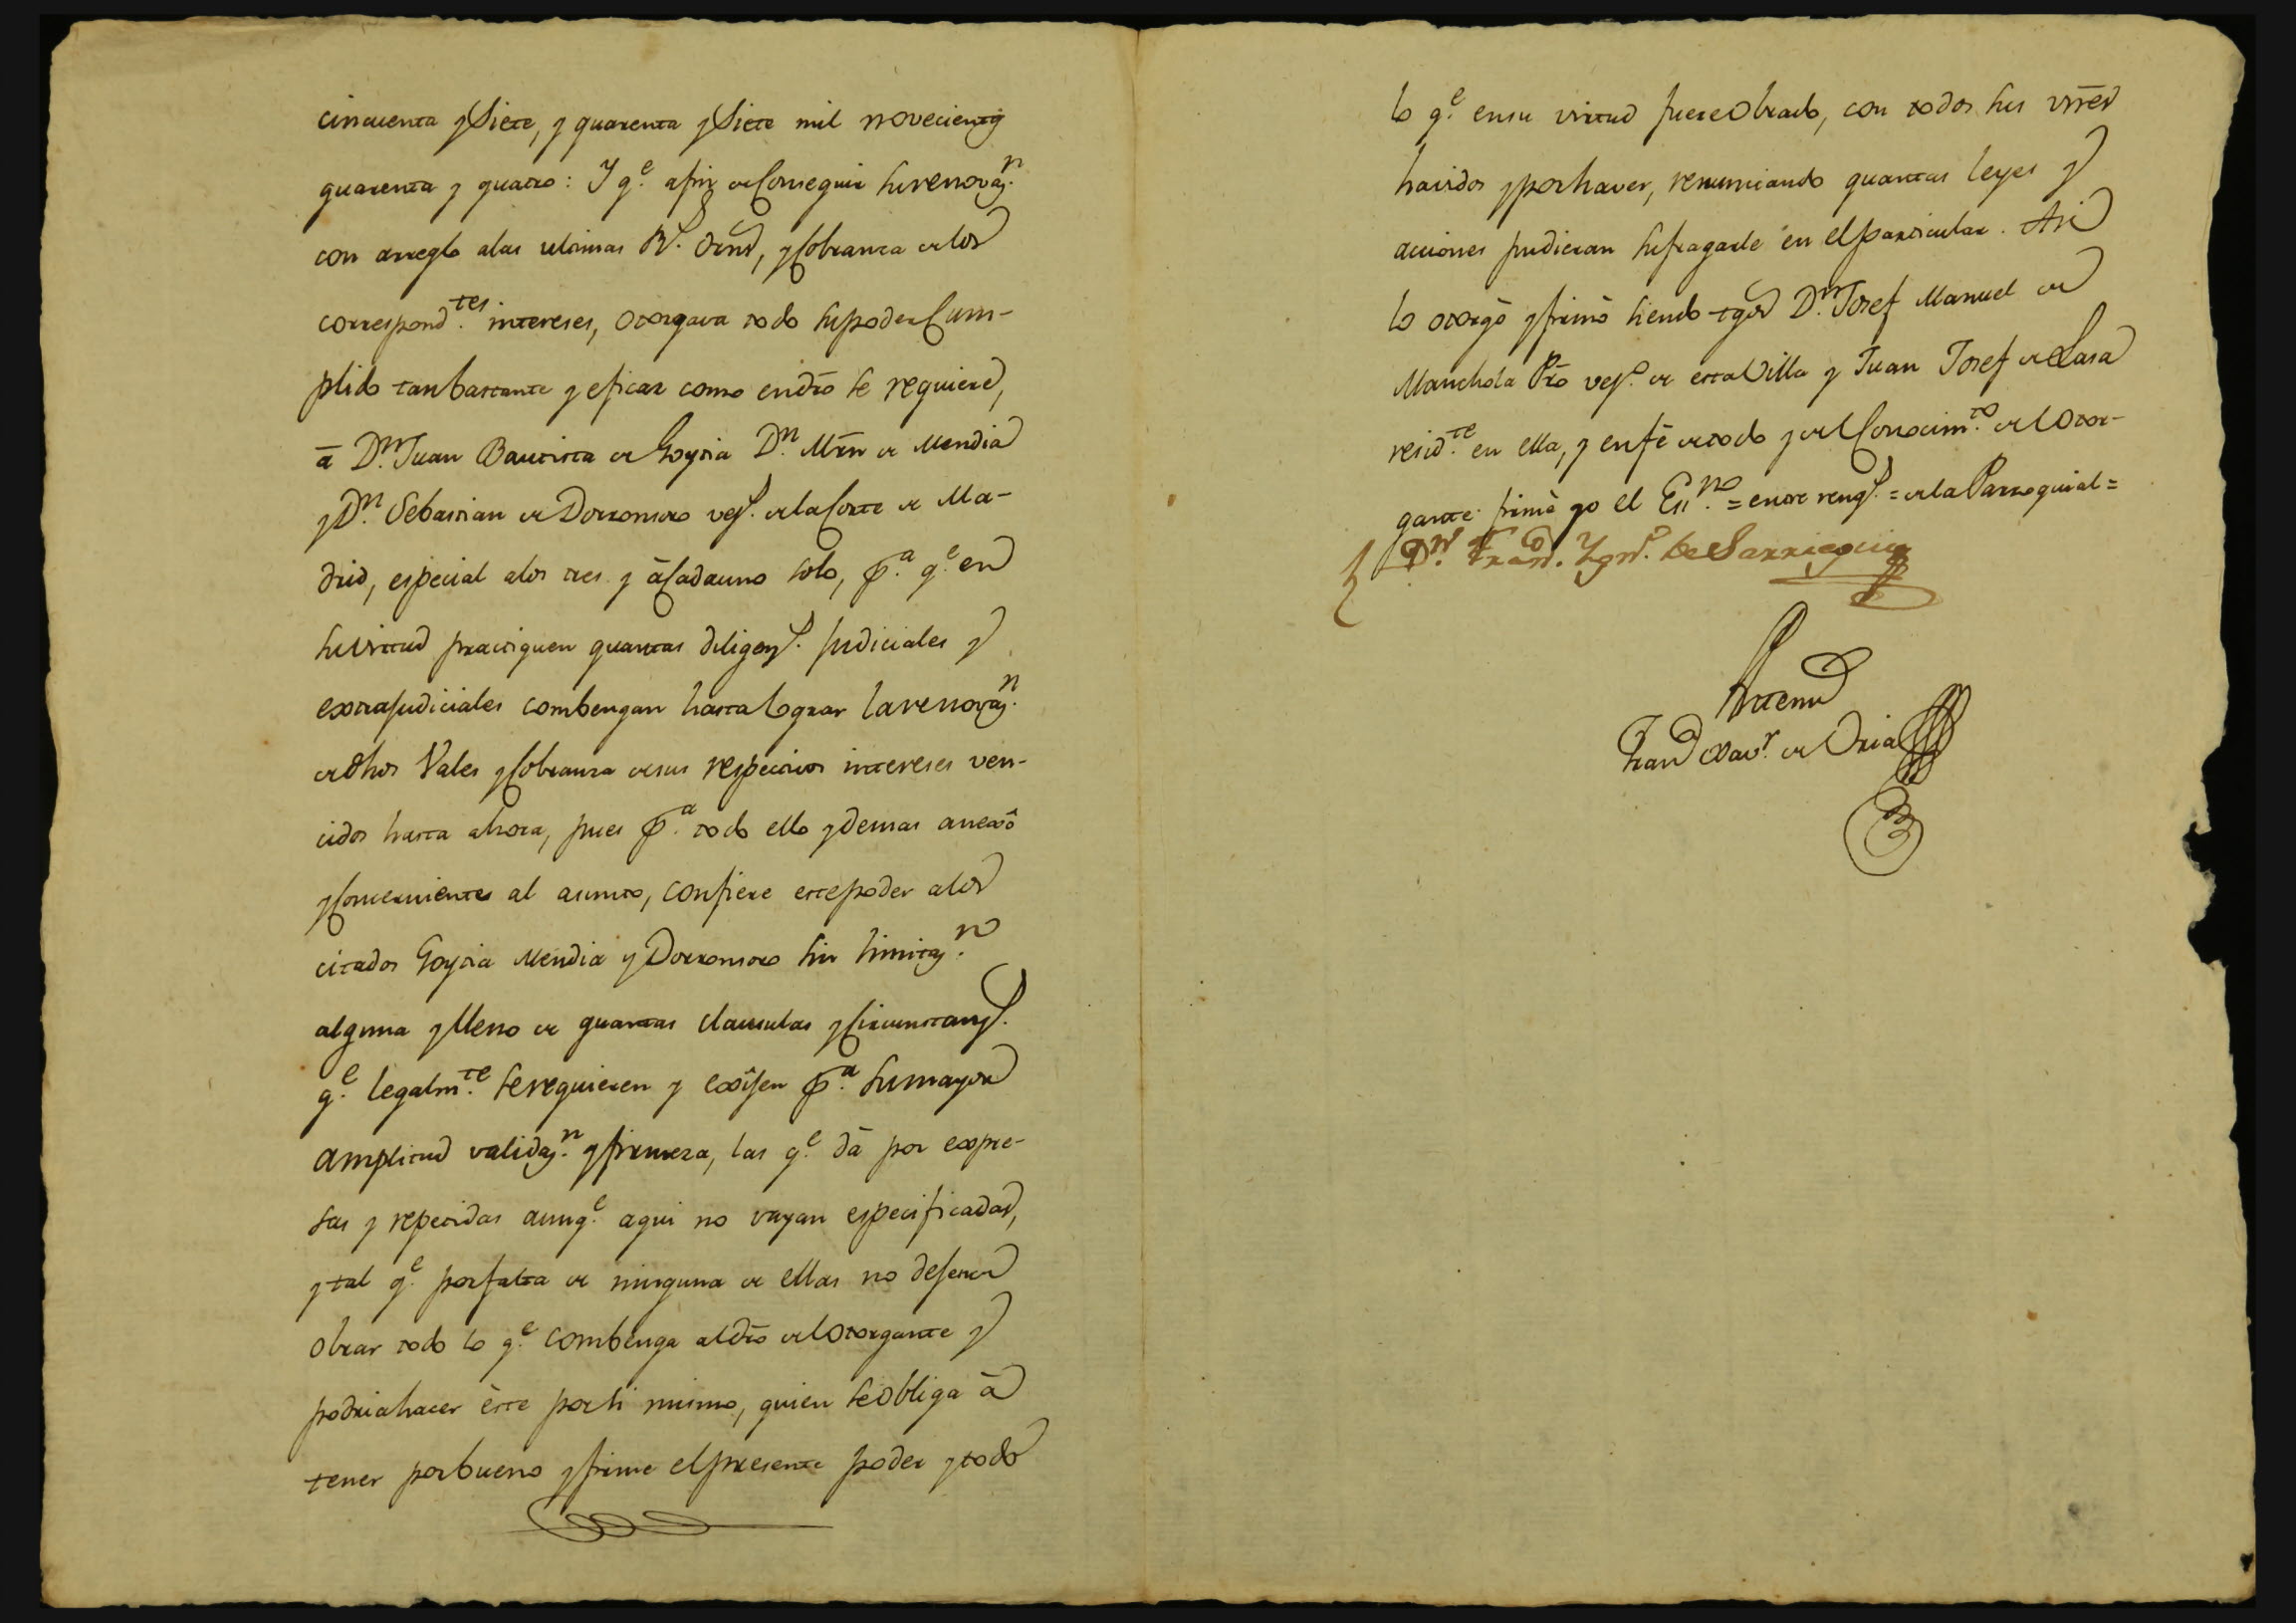 cincuenta y Siete, y quarenta y Siete mil novecientos
quarenta y quatro: Y q.e afin de Conseguir su renovaz.n
con arreglo alas ultimas R.s Orns, y Cobranza de los
correspond.tes intereses, otorgava todo su poder Cum-
plido tan bastante y eficaz como en dro se requiere,
â D.n Juan Bautista de Goytia D.n Mrn de Mendia
y D.n Sebastian de Dorronsoro vez.s de la Corte de Ma-
drid, especial alos tres y â Cada uno solo, p.a q.e en
su virtud practiquen quantas diligenz.s judiciales y
extrajudiciales combengan hasta lograr la renovaz.n
de dhos Vales y Cobranza de sus respectivos intereses ven-
cidos hasta ahora, pues p.a todo ello y demas anexô
y Concerniente al asunto, confiere este poder alos
citados Goytia Mendia y Dorronsoro sin limitaz.n
alguna y lleno de quantas clausulas y Circunstanz.s
q.e legalm.te se requieren y exîjen p.a su mayor
amplitud validaz.n y firmeza, las q.e dâ por expre-
sas y repetidas aunq.e aqui no vayan especificadas,
y tal q.e por falta de ninguna de ellas no dejen de
obrar todo lo q.e combenga al dro del Otorgante y
podria hacer êste por si mismo, quien se obliga â
tener por bueno y firme el presente poder y todo
lo q.e en su virtud fuere Obrado, con todos sus vnes
havidos y por haver, renunciando quantas leyes y
acciones pudieran sufragarle en el particular. Asi
lo otorgô y firmô siendo tgos D.n Josef Manuel de
Manchola Pro vez.o de esta Villa y Juan Josef de Lasa
resid.te en ella, y en fê de todo y del Conocim.to del Otor-
gante firmê yo el Ess.no = entre reng.s = de la Parroquial =
D.n Fran.co Ygn.o de Sarriegui
Antemi
Fran.co Xav.r de Oria